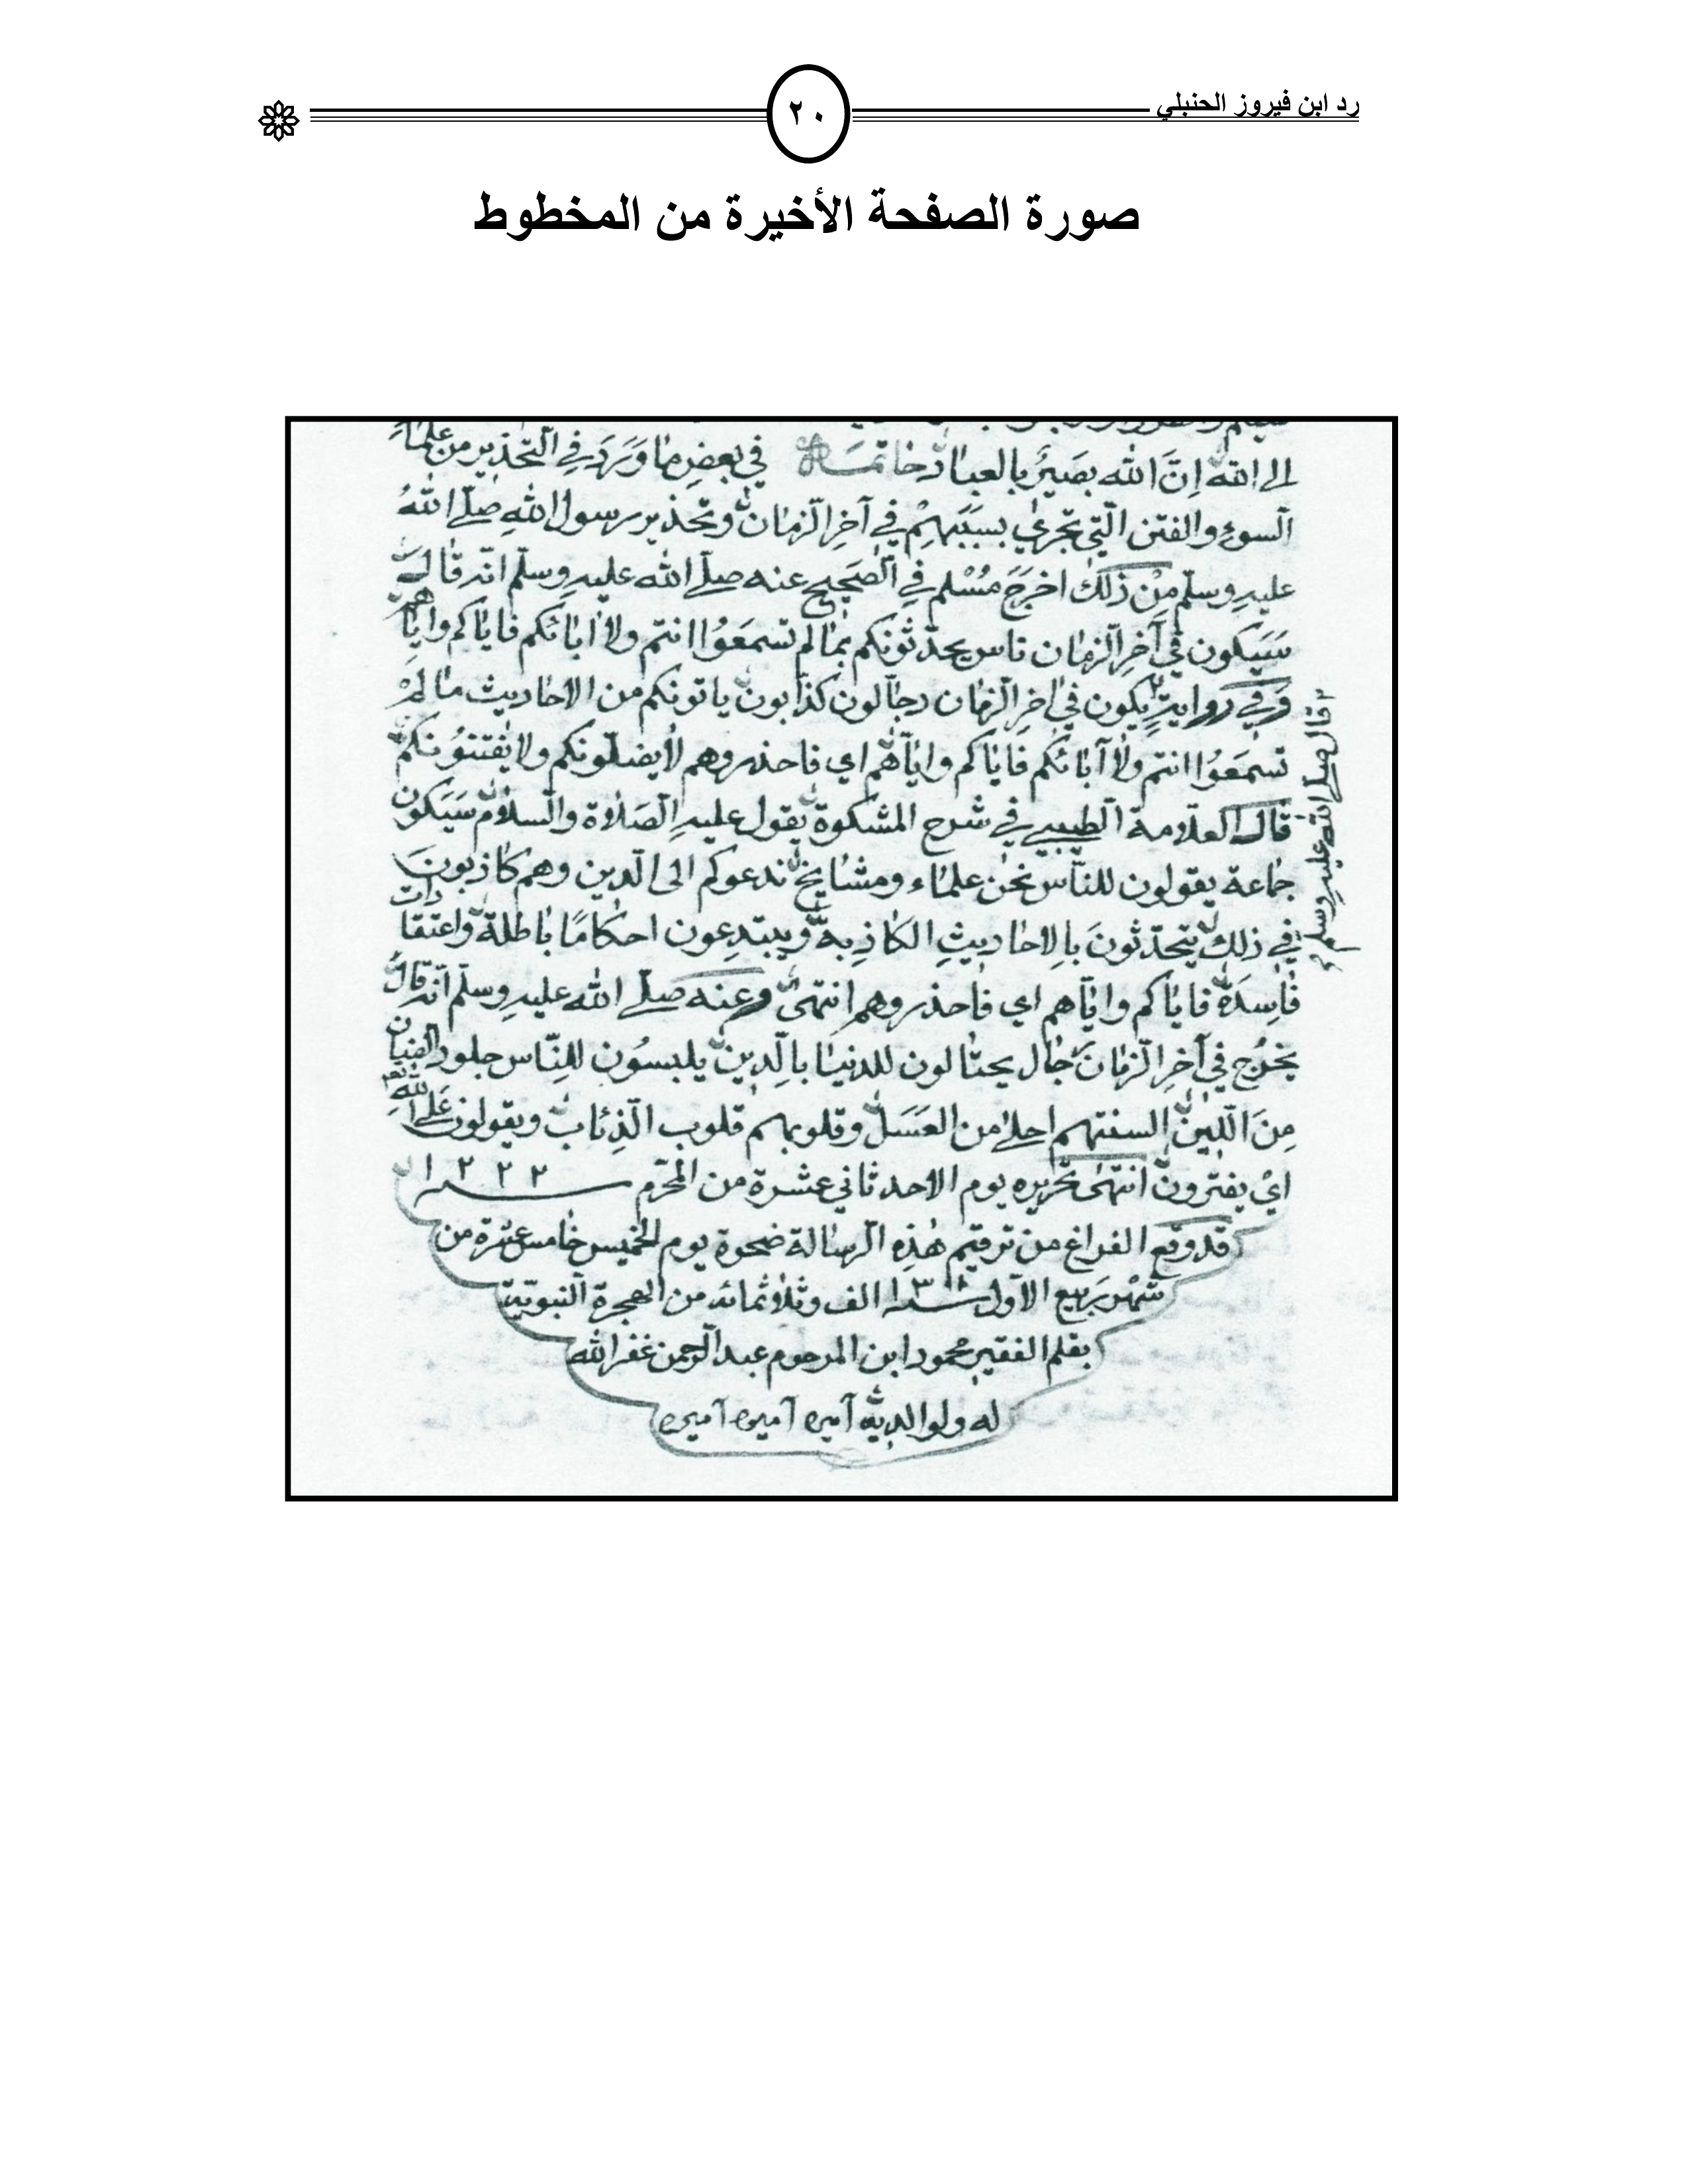 رد ابن فيروز الحنبلي
٢٠
صورة الصفحة الأخيرة من المخطوط
الى الله اِنَّ الله بصَيْرٌ بالعباد خاتمـة في بعضِ ما وَرَدَ في التحذيرِ من علماءِ
السوءِ والفتن الّتي تجري بسبَبهِمْ في آخِرِ الزمان وتحذير رسول اللهِ صلّى اللهُ
عليهِ وسلّم مِنْ ذلك اخرَجَ مُسْلم في الصَحِيحِ عنه صلّى الله عليهِ وسلّم انّه قال
سَيَكون في آخِرِ الزمان ناس يحدّثونكم بمالم تسمَعُوا انتم ولا اباؤكم فاياكم واياهم
وَفي روايةٍ يكون في اخِرِ الزمان دجّالون كذّابون ياتونكم من الاحاديث ما لمْ
تسمَعُوا انتم ولا آباؤكم فاياكم واياهم اي فاحذروهم لايضلّونكم ولا يفتنوُنكم
٢ قال صلى الله عليهِ وسلم
قال العلّامة الطيبي في شرح المشكوة يقول عليهِ الصَلاة والسلام سَيَكون
جماعة يقولون للنّاس نحن علماء ومشايخ ندعوكم الى الدين وهم كاذبونَ
في ذلك يتحدّثونَ بالاحاديثِ الكاذِبة ويبتدِعون احكامًا باطلة واعتقادات
فاسِدَة فاياكم واياهم اي فاحذروهم انتهى وعنه صلّى الله عليهِ وسلّم انّه قال
يخرُج في آخرِ الزمان رجال يحتالون للدنيا بالِدين يلبسوُن للنّاس جلود الضان
مِنَ اللّين السنتهم احلا من العَسَل وقلوبهم قلوب الذِئاب ويقولون عَلى اللهِ
ايْ يفترون انتهى تحريره يوم الاحد ثاني عشرة من المحرّم سنـة ١٢٢٢
قد وقع الفراغ من ترقيم هٰذِهِ الرسالة ضحوة يوم الخميس خامس عشرة من
شهْر رَبيع الاول سنـة الف وثلاثمائه من الهجرة النبويّة
بقلم الفقير محمود ابن المرحوم عبد الرحمن غفر الله
له ولوالديه آمين آمين آمين